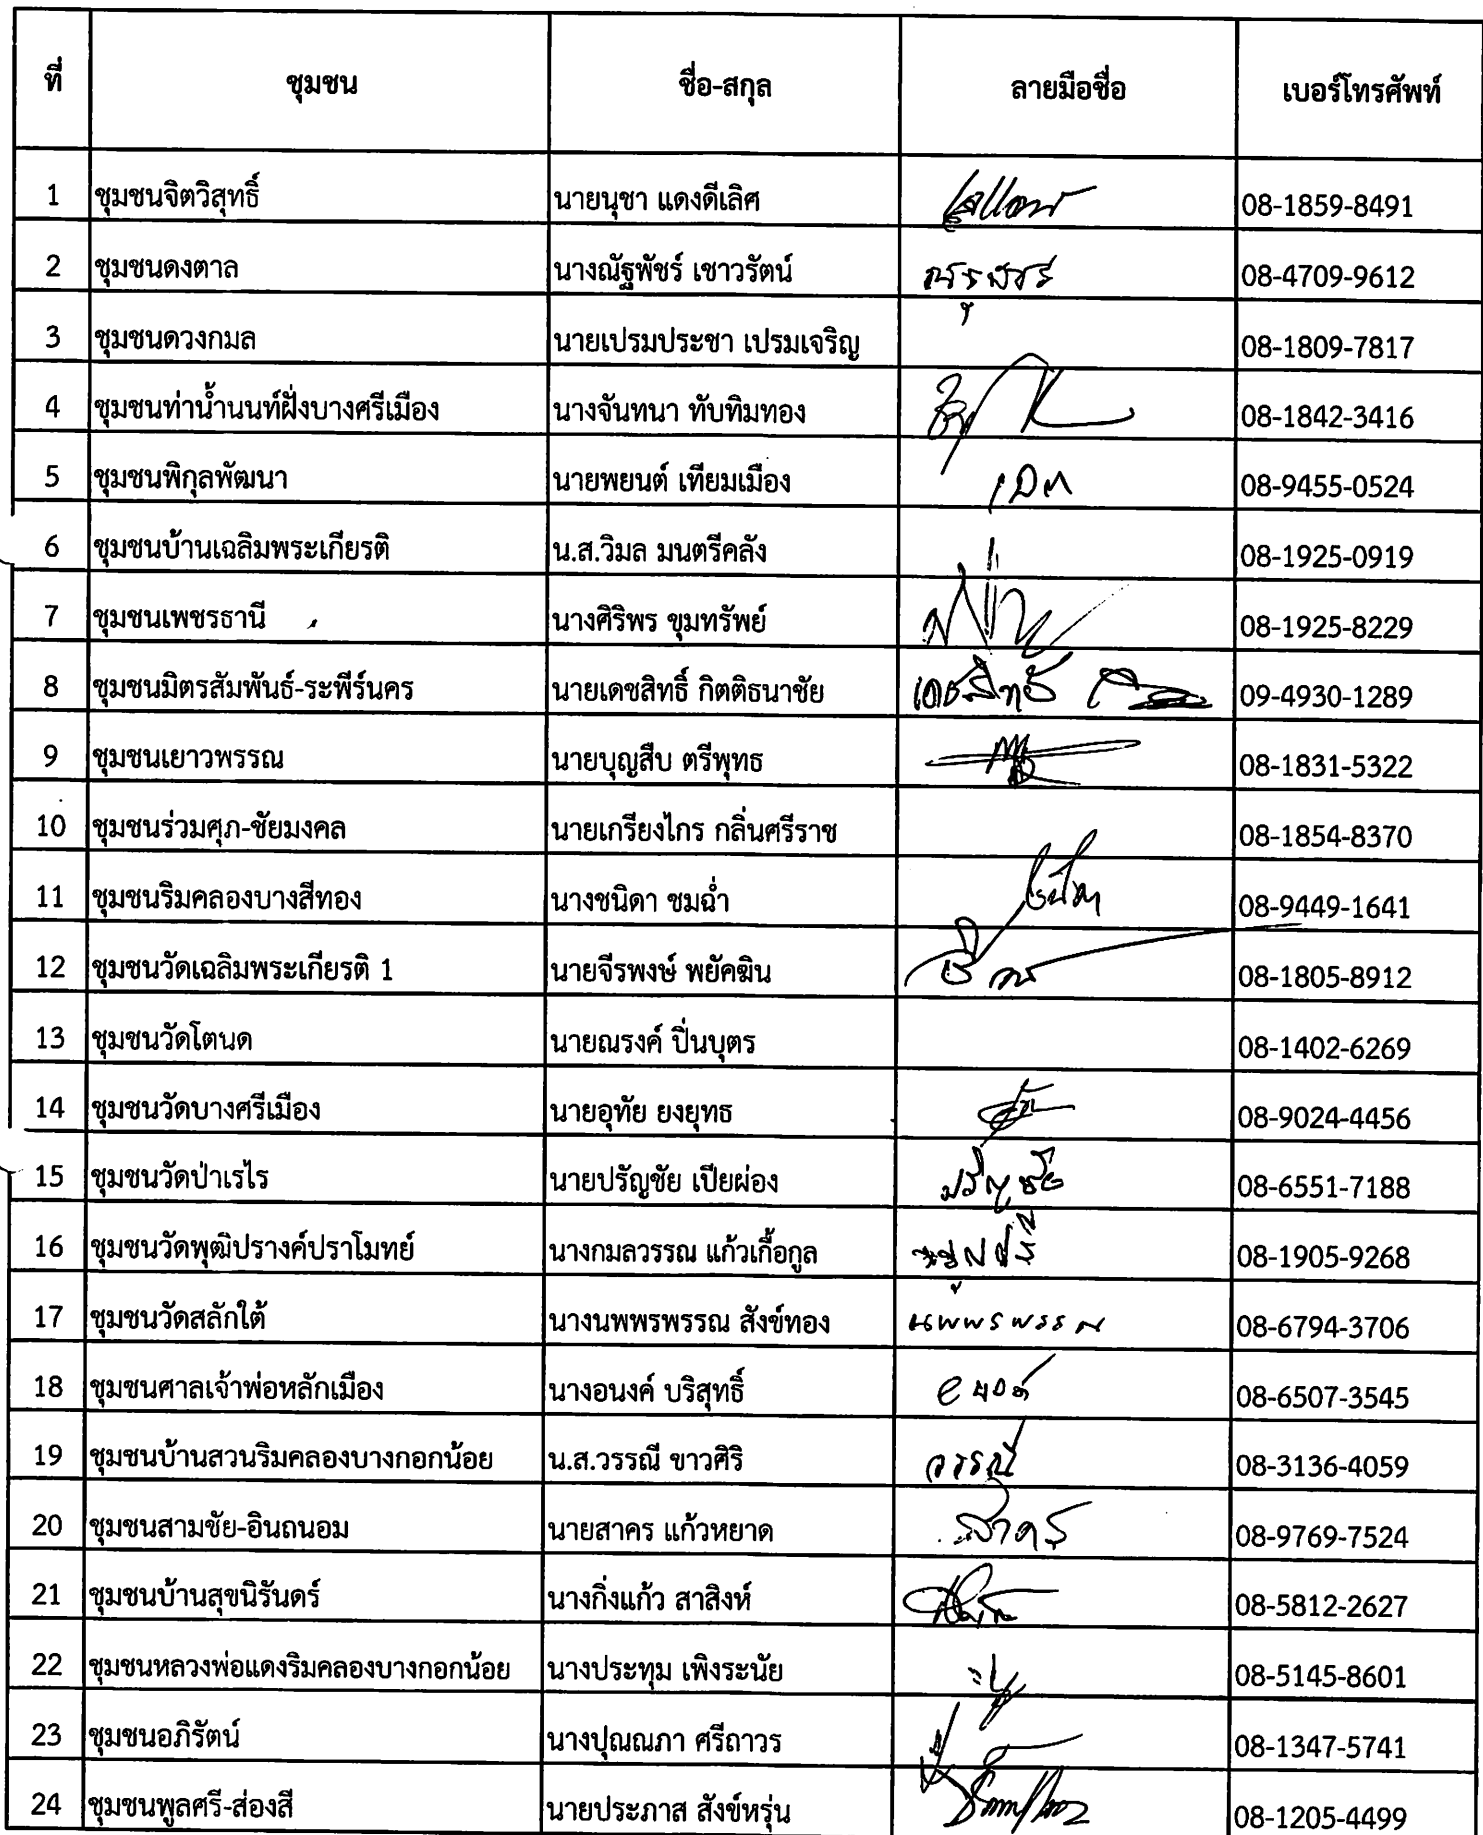 ที่ ชุมชน ชื่อ-สกุล ลายมือชื่อ เบอร์โทรศัพท์
1 ชุมชนจิตวิสุทธิ์ นายนุชา แดงดีเลิศ 08-1859-8491
2 ชุมชนดงตาล นางณัฐพัชร์ เชาวรัตน์ 08-4709-9612
3 ชุมชนดวงกมล นายเปรมประชา เปรมเจริญ 08-1809-7817
4 ชุมชนท่าน้ำนนท์ฝั่งบางศรีเมือง นางจันทนา ทับทิมทอง 08-1842-3416
5 ชุมชนพิกุลพัฒนา นายพยนต์ เทียมเมือง 08-9455-0524
6 ชุมชนบ้านเฉลิมพระเกียรติ น.ส.วิมล มนตรีคลัง 08-1925-0919
7 ชุมชนเพชรธานี นางศิริพร ขุมทรัพย์ 08-1925-8229
8 ชุมชนมิตรสัมพันธ์-ระพีร์นคร นายเดชสิทธิ์ กิตติธนาชัย เดชสิทธิ์ 09-4930-1289
9 ชุมชนเยาวพรรณ นายบุญสืบ ตรีพุทธ 08-1831-5322
10 ชุมชนร่วมศุภ-ชัยมงคล นายเกรียงไกร กลิ่นศรีราช 08-1854-8370
11 ชุมชนริมคลองบางสีทอง นางชนิดา ชมฉ่ำ 08-9449-1641
12 ชุมชนวัดเฉลิมพระเกียรติ 1 นายจีรพงษ์ พยัคฆิน 08-1805-8912
13 ชุมชนวัดโตนด นายณรงค์ ปิ่นบุตร 08-1402-6269
14 ชุมชนวัดบางศรีเมือง นายอุทัย ยงยุทธ 08-9024-4456
15 ชุมชนวัดป่าเรไร นายปรัญชัย เปียผ่อง ปรัญชัย 08-6551-7188
16 ชุมชนวัดพุฒิปรางค์ปราโมทย์ นางกมลวรรณ แก้วเกื้อกูล 08-1905-9268
17 ชุมชนวัดสลักใต้ นางนพพรพรรณ สังข์ทอง นพพรพรรณ 08-6794-3706
18 ชุมชนศาลเจ้าพ่อหลักเมือง นางอนงค์ บริสุทธิ์ อนงค์ 08-6507-3545
19 ชุมชนบ้านสวนริมคลองบางกอกน้อย น.ส.วรรณี ขาวศิริ วรรณี 08-3136-4059
20 ชุมชนสามชัย-อินถนอม นายสาคร แก้วหยาด สาคร 08-9769-7524
21 ชุมชนบ้านสุขนิรันดร์ นางกิ่งแก้ว สาสิงห์ 08-5812-2627
22 ชุมชนหลวงพ่อแดงริมคลองบางกอกน้อย นางประทุม เพิงระนัย 08-5145-8601
23 ชุมชนอภิรัตน์ นางปุณณภา ศรีถาวร 08-1347-5741
24 ชุมชนพูลศรี-ส่องสี นายประภาส สังข์หรุ่น 08-1205-4499